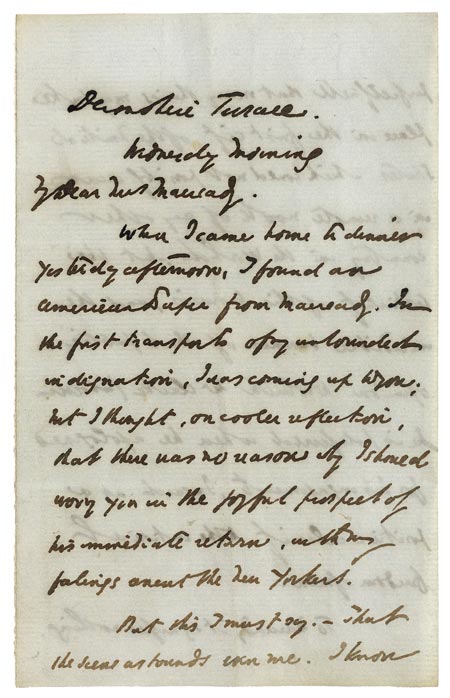 Devonshire Terrace.
Wednesday Morning
My Dear Mrs Macready.
When I came home to dinner
yesterday afternoon, I found an
American Paper from Macready. In
the first transports of my unbounded
indignation, I was coming up to you;
but I thought, on cooler reflection,
that there was no reason why I should
worry you in the joyful prospect of
his immediate return, with my
feelings anent the New Yorkers.
But this I must say. – That
the scene astounds even me. I know